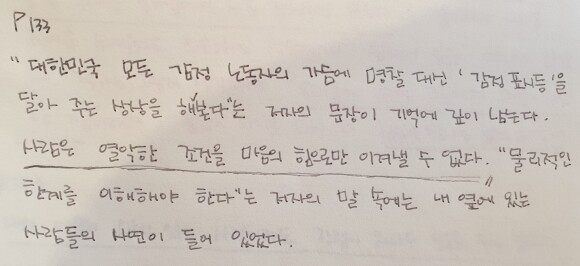 P 133
"대한민국 모든 감정 노동자의 가슴에 명찰 대신 '감정 표시등'을
달아 주는 상상을 해보다"는 저자의 문장이 기억에 깊이 남는다.
사람은 열악한 조건을 마음의 힘으로만 이겨낼 수 없다. "물리적인
한계를 이해해야 한다"는 저자의 말 속에는 내 옆에 있는
사람들의 사연이 들어 있었다.